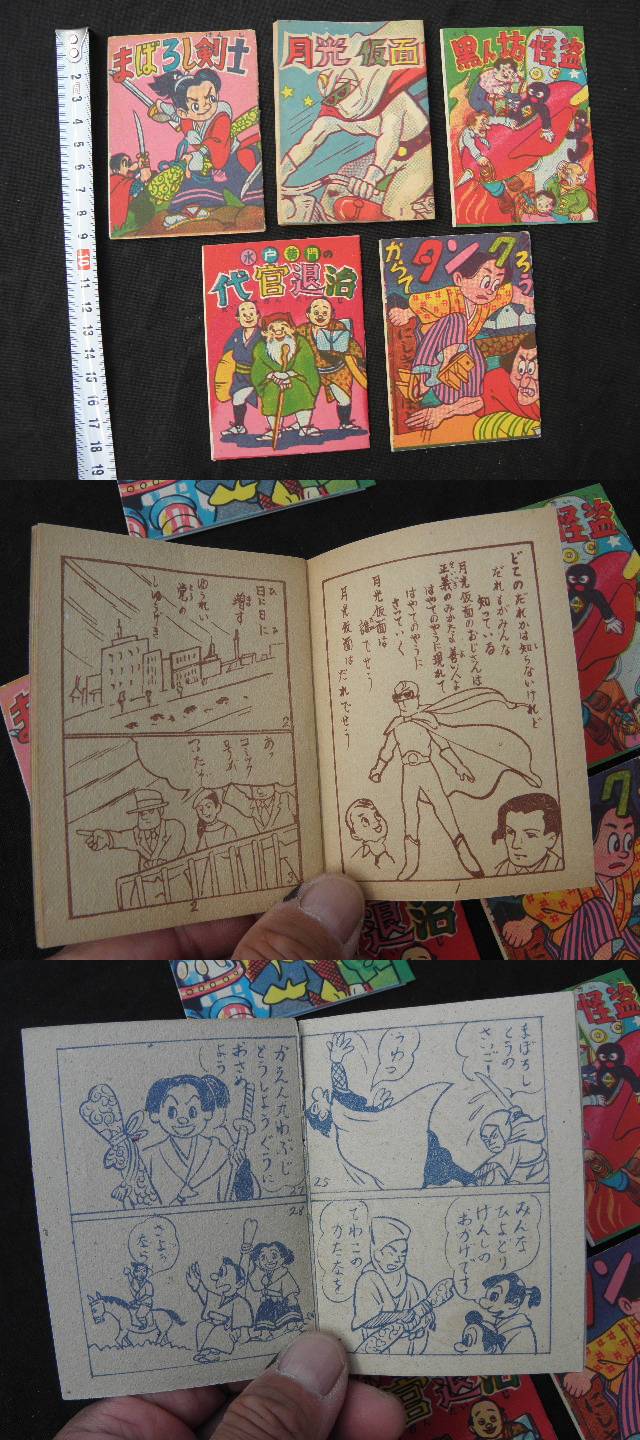 2
3
4
5
6
7
8
9
10
11
12
13
14
15
16
17
18
19
まぼろし剣士
月光仮面
黒ん坊怪盗
水戸黄門の
代官退治
からそ
タンク
ろう
怪盗
どこのだれかは知らないけれど
だれもがみんな
知っている
月光仮面のおじさんは
正義のみかたよ善い人よ
はやてのやうに現れて
はやてのやうに
さっていく
月光仮面は
誰でせう
月光仮面はだれでせう
1
日に日に
増す
ゆうれい
党の
しゅうげき
2
あっ
3
2
怪盗
まぼろし
とうの
さいごー
うわっ
25
みんな
ひよどり
けんしの
おかげです
てわこの
かたなを
かえん丸わぶじ
どうしょうぐうに
おさめ
よう
27
28
さよう
なら